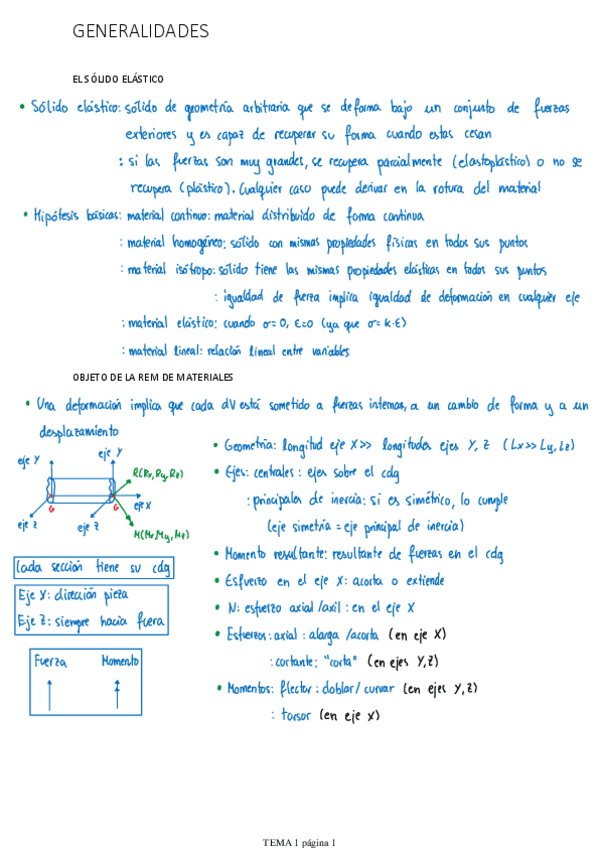 GENERALIDADES
EL SÓLIDO ELÁSTICO
• Sólido elástico: sólido de geometría arbitraria que se deforma bajo un conjunto de fuerzas
exteriores y es capaz de recuperar su forma cuando estas cesan
: si las fuerzas son muy grandes, se recupera parcialmente (elastoplástico) o no se
recupera (plástico). Cualquier caso puede derivar en la rotura del material
• Hipótesis básicas: material continuo: material distribuido de forma continua
: material homogéneo: sólido con mismas propiedades físicas en todos sus puntos
: material isótropo: sólido tiene las mismas propiedades elásticas en todos sus puntos
: igualdad de fuerza implica igualdad de deformación en cualquier eje
: material elástico: cuando σ=0, ε=0 (ya que σ=k·ε)
: material lineal: relación lineal entre variables
OBJETO DE LA REM DE MATERIALES
• Una deformación implica que cada dV está sometido a fuerzas internas, a un cambio de forma y a un
desplazamiento
eje Y
eje Y
R(Rx,Ry,Rz)
G
G
eje X
eje Z
eje Z
M(Mx,My,Mz)
Cada sección tiene su cdg
Eje X: dirección pieza
Eje Z: siempre hacia fuera
Fuerza Momento
• Geometría: longitud eje X >> longitudes ejes Y, Z (Lx>>Ly,Lz)
• Ejes: centrales: ejes sobre el cdg
: principales de inercia: si es simétrico, lo cumple
(eje simetría = eje principal de inercia)
• Momento resultante: resultante de fuerzas en el cdg
• Esfuerzo en el eje X: acorta o extiende
• N: esfuerzo axial/axil: en el eje X
• Esfuerzos: axial: alarga/acorta (en eje X)
: cortante: "corta" (en ejes Y,Z)
• Momentos: flector: doblar/curvar (en ejes Y,Z)
: torsor (en eje X)
TEMA 1 página 1